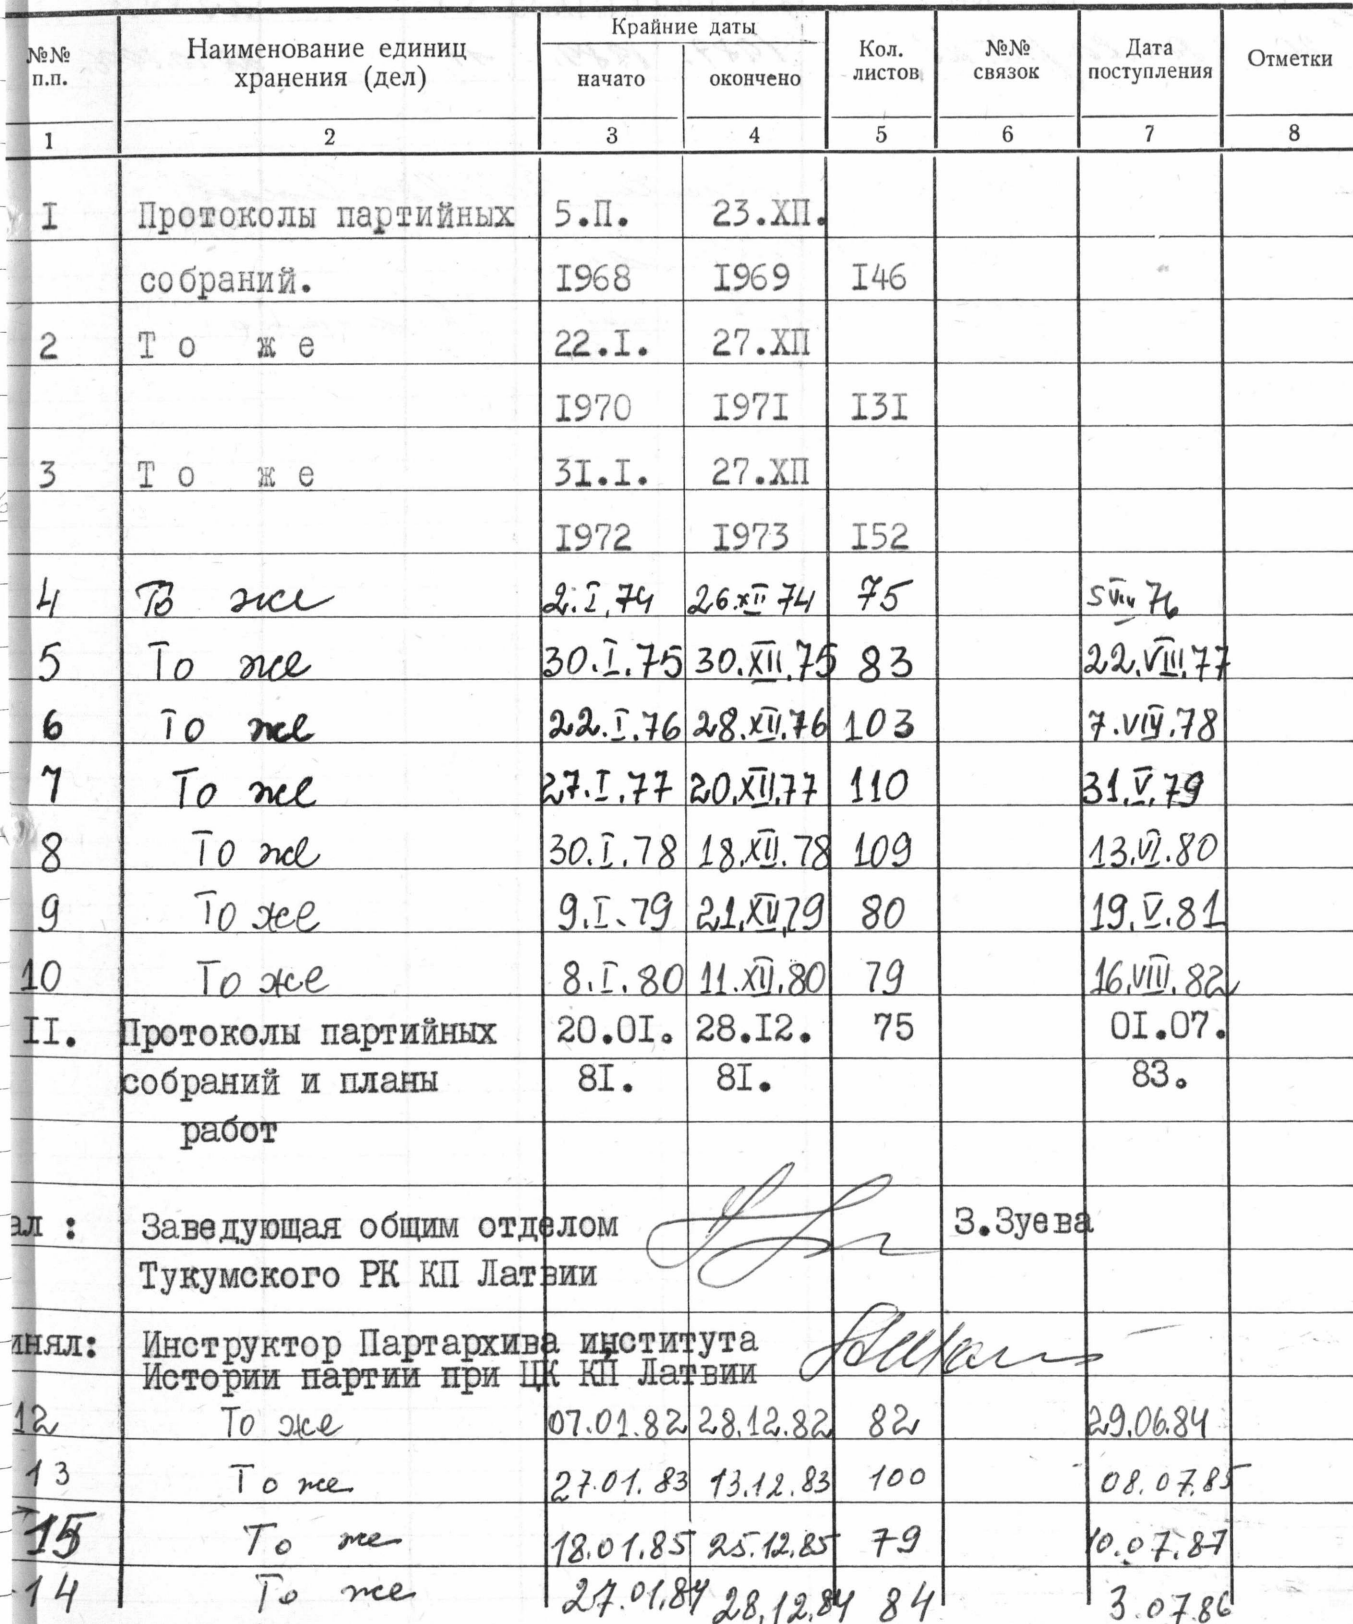 №№ п.п. Наименование единиц хранения (дел) Крайние даты Кол. листов №№ связок Дата поступления Отметки
начато окончено
1 2 3 4 5 6 7 8
I Протоколы партийных 5.П. 23.ХП.
собраний. I968 I969 I46
2 Т о ж е 22.I. 27.ХП
I970 I97I I3I
3 Т о ж е 3I.I. 27.ХП
I972 I973 I52
4 То же 2.I.74 26.XII 74 75
5 То же 30.I.75 30.XII.75 83 22.VIII.77
6 То же 22.I.76 28.XII.76 103
7 То же 27.I.77 20.XII.77 110 31.V.79
8 То же 30.I.78 18.XII.78 109 13.VI.80
9 То же 9.I.79 21.XII.79 80 19.V.81
10 То же 8.I.80 11.XII.80 79 16.VIII.82
II. Протоколы партийных 20.0I. 28.I2. 75 0I.07.
собраний и планы 8I. 8I. 83.
работ
ал : Заведующая общим отделом З.Зуева
Тукумского РК КП Латвии
инял: Инструктор Партархива института
Истории партии при ЦК КП Латвии
12 То же 07.01.82 28.12.82 82 29.06.84
13 То же 27.01.83 13.12.83 100 08.07.85
15 То же 18.01.85 25.12.85 79 10.07.87
14 То же 27.01.84 28.12.84 84 3.07.86